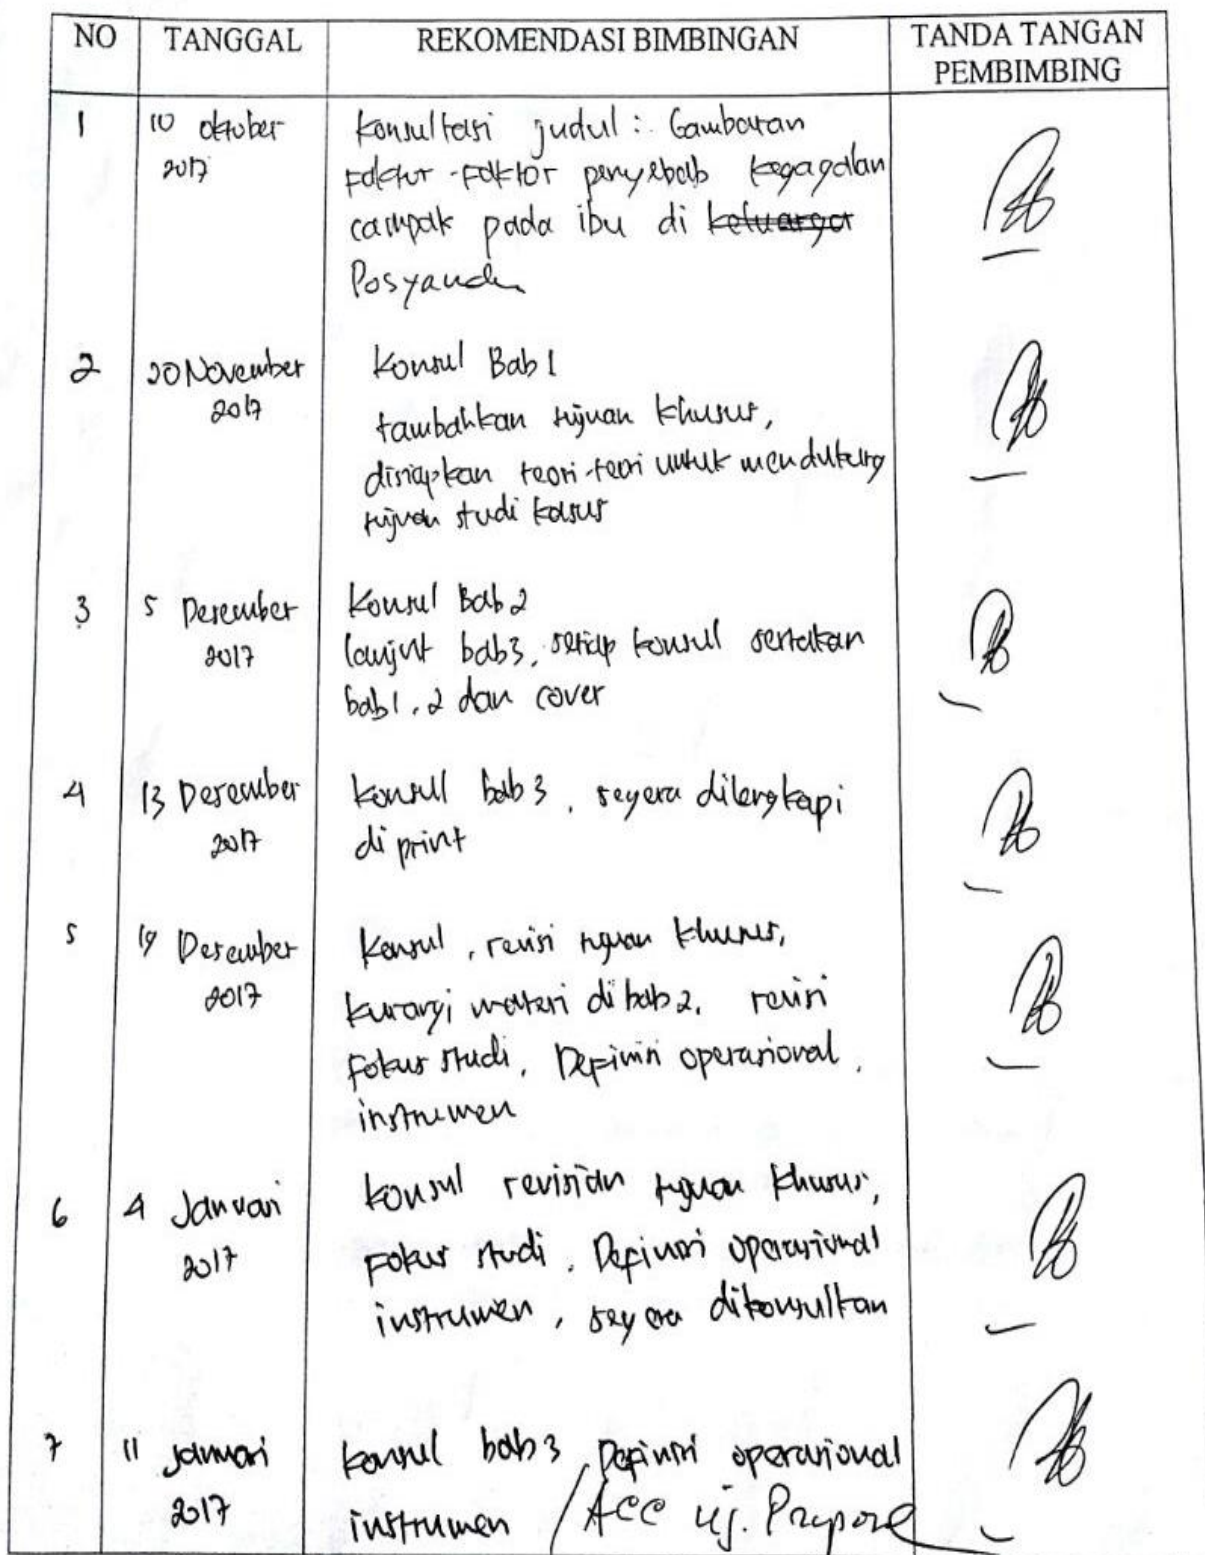 NO TANGGAL REKOMENDASI BIMBINGAN TANDA TANGAN
PEMBIMBING
1 10 oktober Konsultasi judul : Gambaran
2017 Faktor-Faktor penyebab kegagalan
campak pada ibu di keluarga
Posyandu
2 20 November Konsul Bab 1
2017 tambahkan tujuan khusus,
disiapkan teori-teori untuk mendukung
tujuan studi kasus
3 5 Desember Konsul Bab 2
2017 lanjut bab3, setiap konsul sertakan
bab1, 2 dan cover
4 13 Desember konsul bab 3, segera dilengkapi
2017 di print
5 19 Desember Konsul, revisi tujuan khusus,
2017 kurangi materi di bab 2, revisi
Fokus studi, Depinisi operasional,
instrumen
6 4 Januari konsul revisian tujuan khusus,
2017 Fokus studi, Depinisi operasional
instrumen, segera dikonsultkan
7 11 januari konsul bab 3 Depinisi operasional
2017 instrumen / Acc Uj. Propose